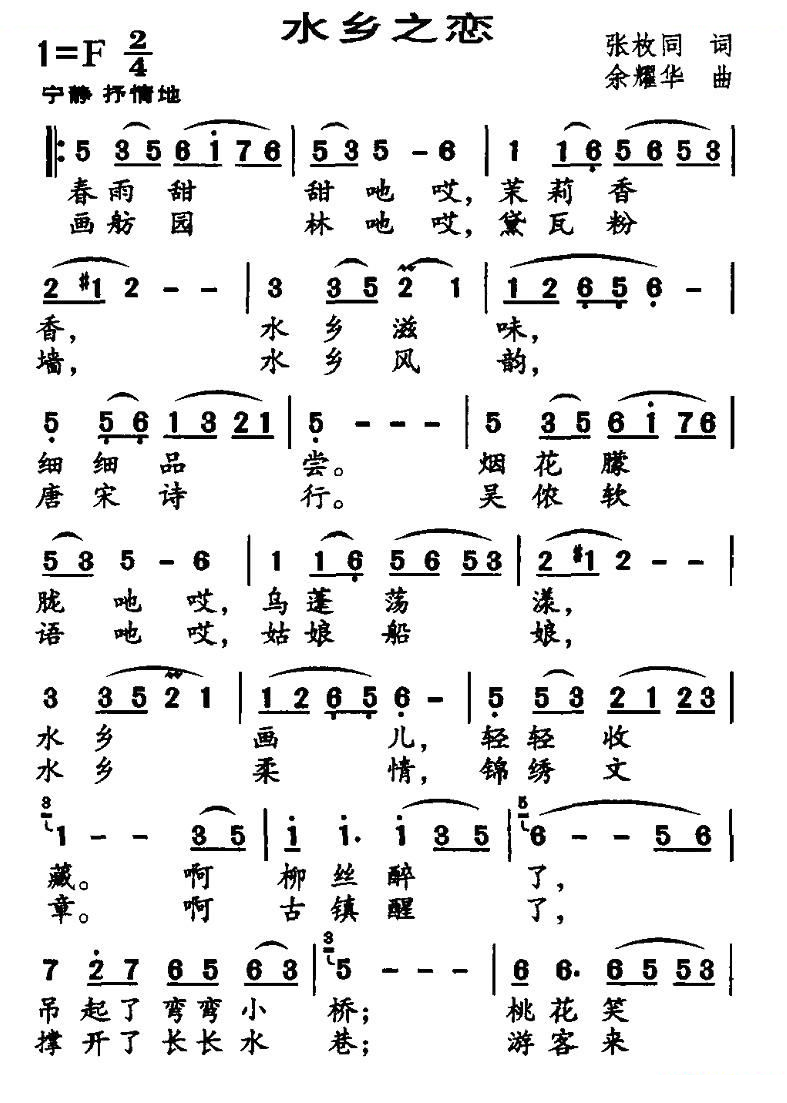 水乡之恋
1=F 2/4
张枚同 词
余耀华 曲
宁静 抒情地
5 3 5 6 i 7 6 5 3 5 - 6 1 1 6 5 6 5 3
春雨甜 甜 吔 哎, 茉莉香
画舫园 林 吔 哎, 黛瓦粉
2 #1 2 - - 3 3 5 2 1 1 2 6 5 6 -
香, 水乡滋 味,
墙, 水乡风 韵,
5 5 6 1 3 2 1 5 - - - 5 3 5 6 i 7 6
细细品 尝。 烟花朦
唐宋诗 行。 吴侬软
5 3 5 - 6 1 1 6 5 6 5 3 2 #1 2 - -
胧 吔 哎, 乌蓬荡 漾,
语 吔 哎, 姑娘船 娘,
3 3 5 2 1 1 2 6 5 6 - 5 5 3 2 1 2 3
水乡 画 儿, 轻轻收
水乡 柔 情, 锦绣文
3 1 - - 3 5 i i. i 3 5 5 6 - - 5 6
藏。 啊 柳丝醉 了,
章。 啊 古镇醒 了,
7 2 7 6 5 6 3 3 5 - - - 6 6. 6 3 5
吊起了弯弯小 桥; 桃花笑
撑开了长长水 巷; 游客来